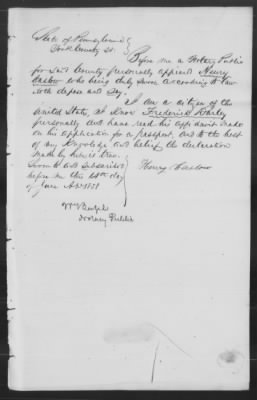 State of Pennsylvania }
York County SS. }
Before me a Notary Public
for said County personally appeared Henry
who being duly sworn according to law
doth depose and say,
I am a citizen of the
United States, I know Frederick
personally and have read his affidavit made
on his application for a passport, and to the best
of my Knowledge and belief, the declaration
made by him is true.
Sworn to and Subscribed
before me this day
of June AD.
Henry
Notary Public